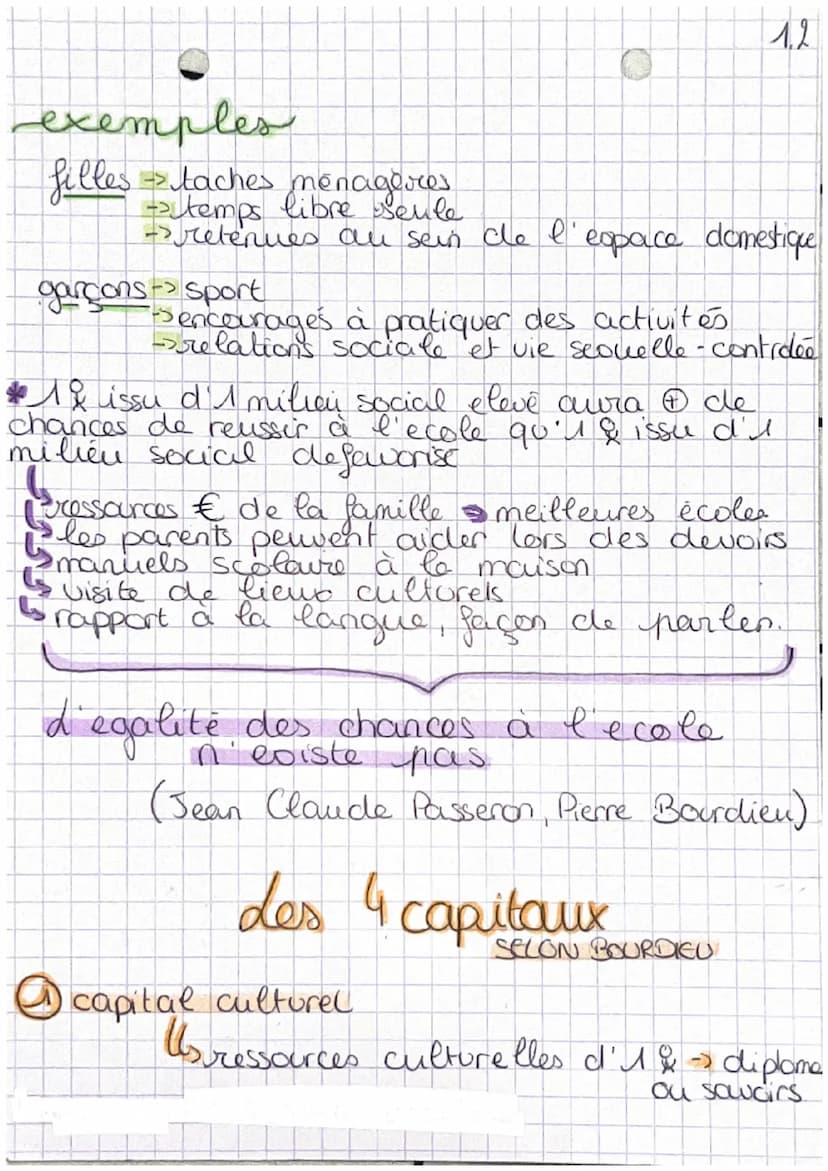 1.2
exemples
filles -> taches ménagères
-> temps libre seule
-> retenues au sein de l'espace domestique
garçons -> sport
-> encouragés à pratiquer des activités
-> relations sociale et vie sexuelle - controlée
* 1 issu d'1 milieu social elevé aura ⊕ de
chances de reussir à l'ecole qu'1 issu d'1
milieu social defavorisé
↳ ressources € de la famille → meilleures écoles
↳ les parents peuvent aider lors des devoirs
↳ manuels scolaire à la maison
↳ visite de lieux culturels
↳ rapport à la langue, façon de parler.
L'egalité des chances à l'ecole
n'existe pas
(Jean Claude Passeron, Pierre Bourdieu)
Les 4 capitaux
SELON BOURDIEU
① capital culturel
↳ ressources culturelles d'1 -> diplome
ou savoirs